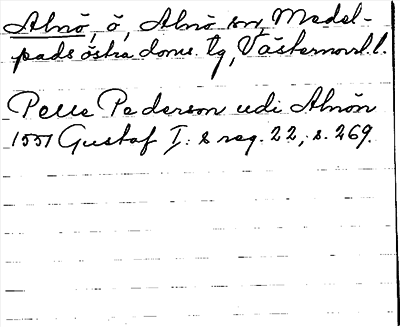 Alnö, ö, Alnö sn, Medel-
pads östra doms. tg, Västernorrl. l.
Pelle Pederson udi Alnön
1551 Gustaf I:s reg. 22, s. 269.